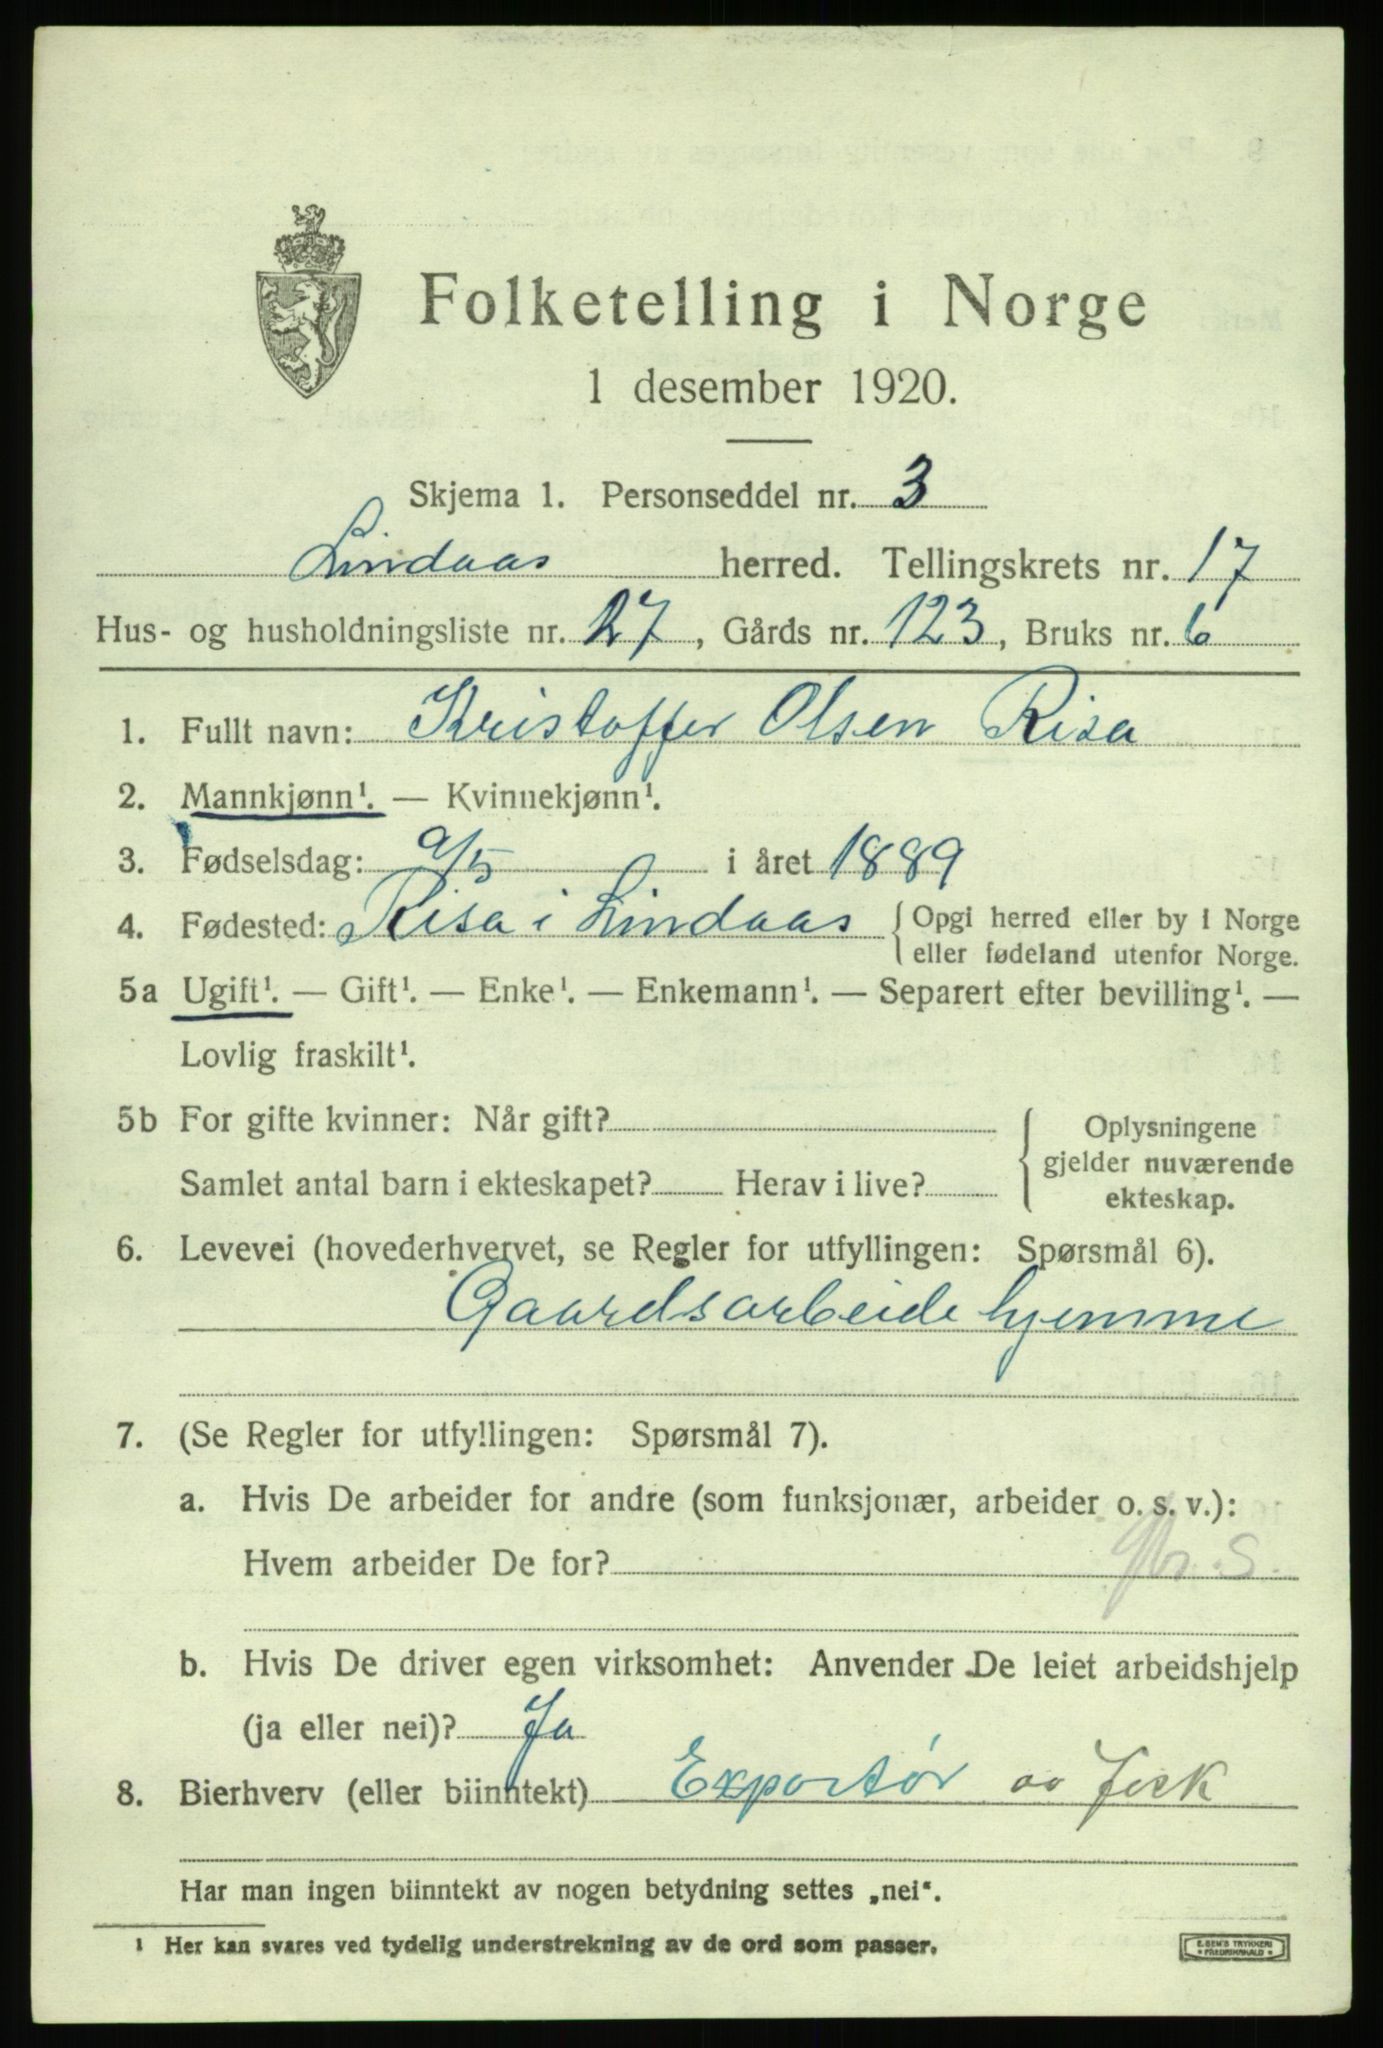 Folketelling i Norge
1 desember 1920.
Skjema 1. Personseddel nr. 3
Lindaas herred. Tellingskrets nr. 17
Hus- og husholdningsliste nr. 27, Gårds nr. 123, Bruks nr. 6
1. Fullt navn: Kristoffer Olsen Risa
2. Mannkjønn¹. — Kvinnekjønn¹.
3. Fødselsdag: 9/5 i året 1889
4. Fødested: Risa i Lindaas { Opgi herred eller by i Norge
eller fødeland utenfor Norge.
5a Ugift¹. — Gift¹. — Enke¹. — Enkemann¹. — Separert efter bevilling¹. —
Lovlig fraskilt¹.
5b For gifte kvinner: Når gift?
Samlet antal barn i ekteskapet? Herav i live?
{ Oplysningene
gjelder nuværende
ekteskap.
6. Levevei (hovederhvervet, se Regler for utfyllingen: Spørsmål 6).
Gaardsarbeide hjemme
7. (Se Regler for utfyllingen: Spørsmål 7).
a. Hvis De arbeider for andre (som funksjonær, arbeider o. s. v.):
Hvem arbeider De for?
b. Hvis De driver egen virksomhet: Anvender De leiet arbeidshjelp
(ja eller nei)? Ja
8. Bierhverv (eller biinntekt) Exportør av fisk
Har man ingen biinntekt av nogen betydning settes „nei“.
¹ Her kan svares ved tydelig understrekning av de ord som passer.
E. SEM'S TRYKKERI
FREDRIKSHALD